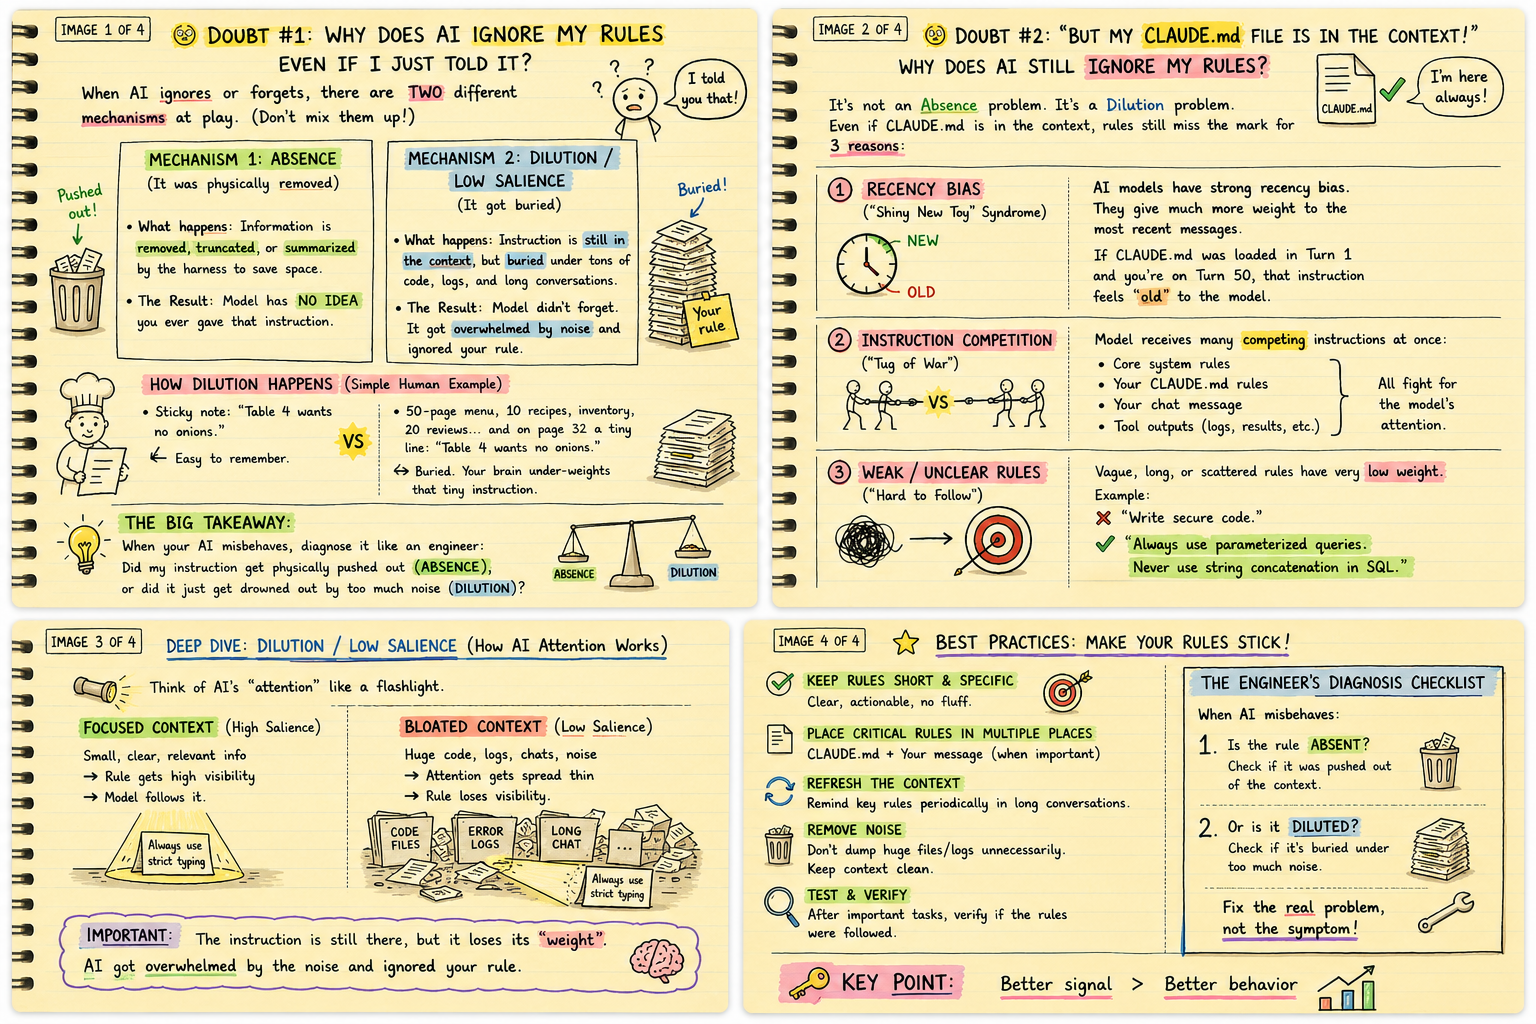 IMAGE 1 OF 4
DOUBT #1: WHY DOES AI IGNORE MY RULES
EVEN IF I JUST TOLD IT?
When AI ignores or forgets, there are TWO different
mechanisms at play. (Don't mix them up!)
? ? ?
I told
you that!
Pushed
out!
MECHANISM 1: ABSENCE
(It was physically removed)
• What happens: Information is
removed, truncated, or summarized
by the harness to save space.
• The Result: Model has NO IDEA
you ever gave that instruction.
MECHANISM 2: DILUTION /
LOW SALIENCE
(It got buried)
• What happens: Instruction is still in
the context, but buried under tons of
code, logs, and long conversations.
• The Result: Model didn't forget.
It got overwhelmed by noise and
ignored your rule.
Buried!
Your
rule
HOW DILUTION HAPPENS (Simple Human Example)
• Sticky note: "Table 4 wants
no onions."
← Easy to remember.
VS
• 50-page menu, 10 recipes, inventory,
20 reviews... and on page 32 a tiny
line: "Table 4 wants no onions."
↔ Buried. Your brain under-weights
that tiny instruction.
THE BIG TAKEAWAY:
When your AI misbehaves, diagnose it like an engineer:
Did my instruction get physically pushed out (ABSENCE),
or did it just get drowned out by too much noise (DILUTION)?
ABSENCE
DILUTION
IMAGE 2 OF 4
DOUBT #2: "BUT MY CLAUDE.md FILE IS IN THE CONTEXT!"
WHY DOES AI STILL IGNORE MY RULES?
It's not an Absence problem. It's a Dilution problem.
Even if CLAUDE.md is in the context, rules still miss the mark for
3 reasons:
CLAUDE.md
I'm here
always!
1 RECENCY BIAS
("Shiny New Toy" Syndrome)
NEW
OLD
AI models have strong recency bias.
They give much more weight to the
most recent messages.
If CLAUDE.md was loaded in Turn 1
and you're on Turn 50, that instruction
feels "old" to the model.
2 INSTRUCTION COMPETITION
("Tug of War")
VS
Model receives many competing instructions at once:
• Core system rules
• Your CLAUDE.md rules
• Your chat message
• Tool outputs (logs, results, etc.)
All fight for
the model's
attention.
3 WEAK / UNCLEAR RULES
("Hard to follow")
Vague, long, or scattered rules have very low weight.
Example:
"Write secure code."
"Always use parameterized queries.
Never use string concatenation in SQL."
IMAGE 3 OF 4
DEEP DIVE: DILUTION / LOW SALIENCE (How AI Attention Works)
Think of AI's "attention" like a flashlight.
FOCUSED CONTEXT (High Salience)
Small, clear, relevant info
→ Rule gets high visibility
→ Model follows it.
Always use
strict typing
BLOATED CONTEXT (Low Salience)
Huge code, logs, chats, noise
→ Attention gets spread thin
→ Rule loses visibility.
CODE
FILES
ERROR
LOGS
LONG
CHAT
...
Always use
strict typing
IMPORTANT: The instruction is still there, but it loses its "weight".
AI got overwhelmed by the noise and ignored your rule.
IMAGE 4 OF 4
BEST PRACTICES: MAKE YOUR RULES STICK!
KEEP RULES SHORT & SPECIFIC
Clear, actionable, no fluff.
PLACE CRITICAL RULES IN MULTIPLE PLACES
CLAUDE.md + Your message (when important)
REFRESH THE CONTEXT
Remind key rules periodically in long conversations.
REMOVE NOISE
Don't dump huge files/logs unnecessarily.
Keep context clean.
TEST & VERIFY
After important tasks, verify if the rules
were followed.
THE ENGINEER'S DIAGNOSIS CHECKLIST
When AI misbehaves:
1. Is the rule ABSENT?
Check if it was pushed out
of the context.
2. Or is it DILUTED?
Check if it's buried under
too much noise.
Fix the real problem,
not the symptom!
KEY POINT: Better signal > Better behavior